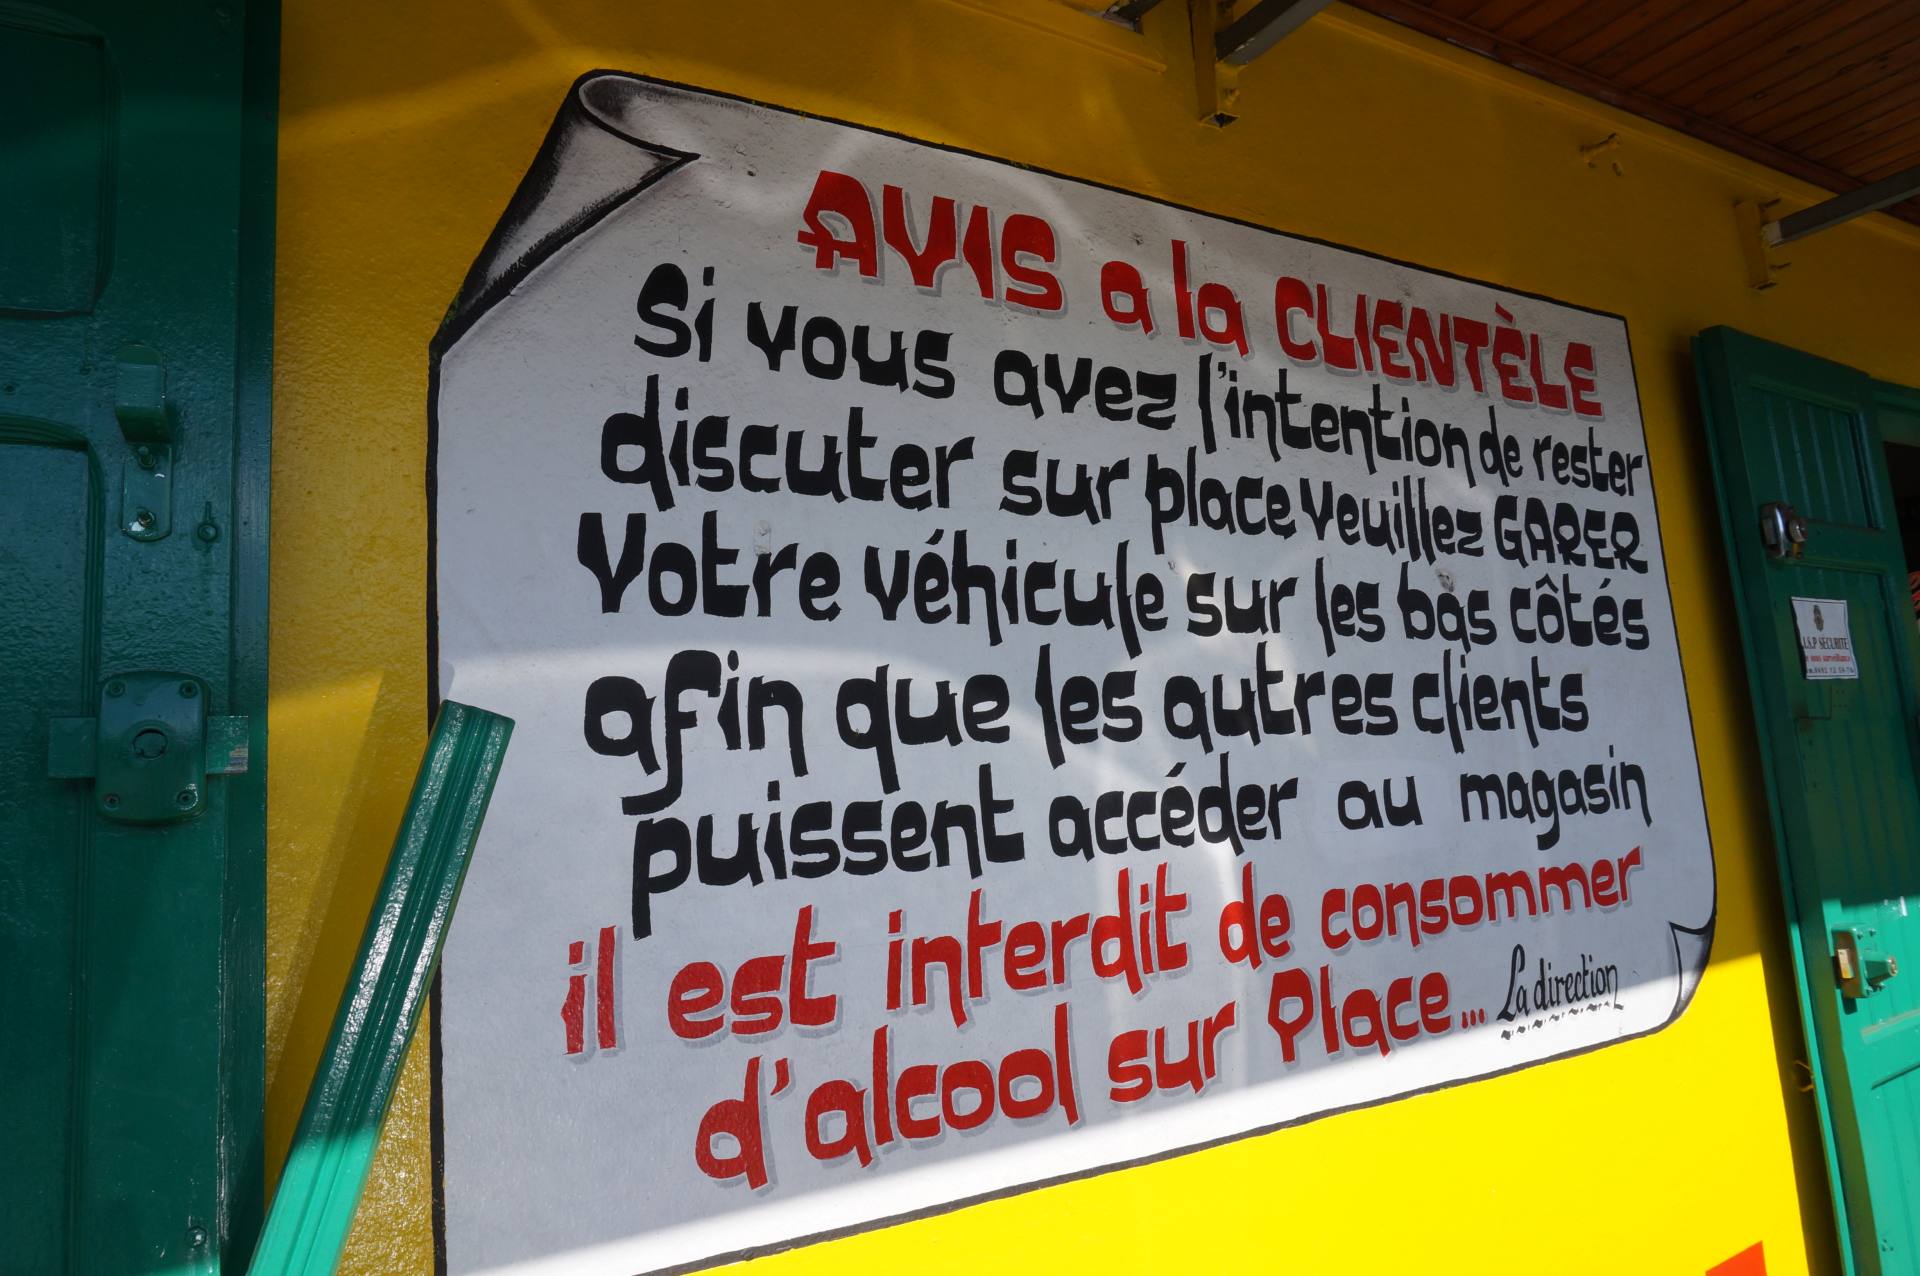 AVIS a la CLIENTÈLE
Si vous avez l'intention de rester
discuter sur place veuillez GARER
Votre véhicule sur les bas côtés
afin que les autres clients
puissent accéder au magasin
il est interdit de consommer
d'alcool sur Place...
La direction
SECURITE